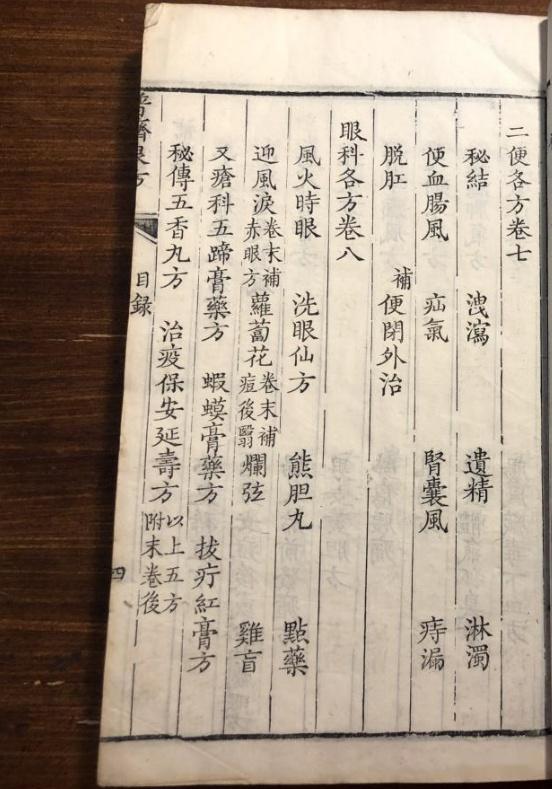 二便各方卷七
秘結 洩瀉 遺精 淋濁
便血腸風 疝氣 腎囊風 痔漏
脫肛 補便閉外治
眼科各方卷八
風火時眼 洗眼仙方 熊胆丸 點藥
迎風淚卷末補赤眼方 蘿蔔花卷末補痘後翳 爛弦 雞盲
又瘡科五蹄膏藥方 蝦蟆膏藥方 拔疔紅膏方
秘傳五香丸方 治疫保安延壽方以上五方附末卷後
普濟良方 目錄 四